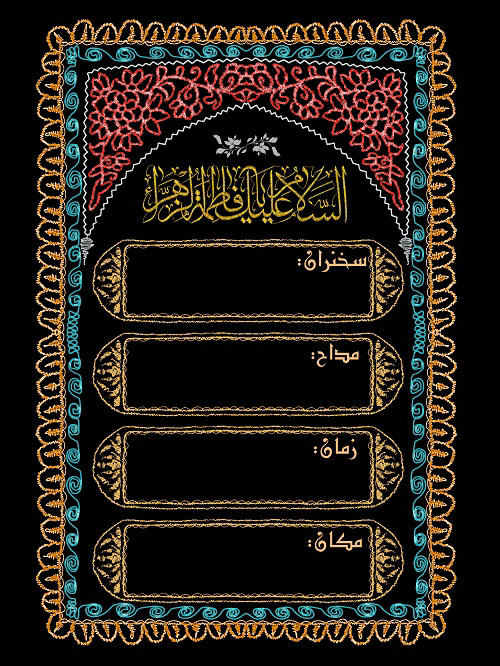 السلام علیک یا فاطمة الزهراء
سخنران:
مداح:
زمان:
مکان: